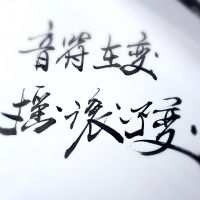 音符在变
摇滚没变